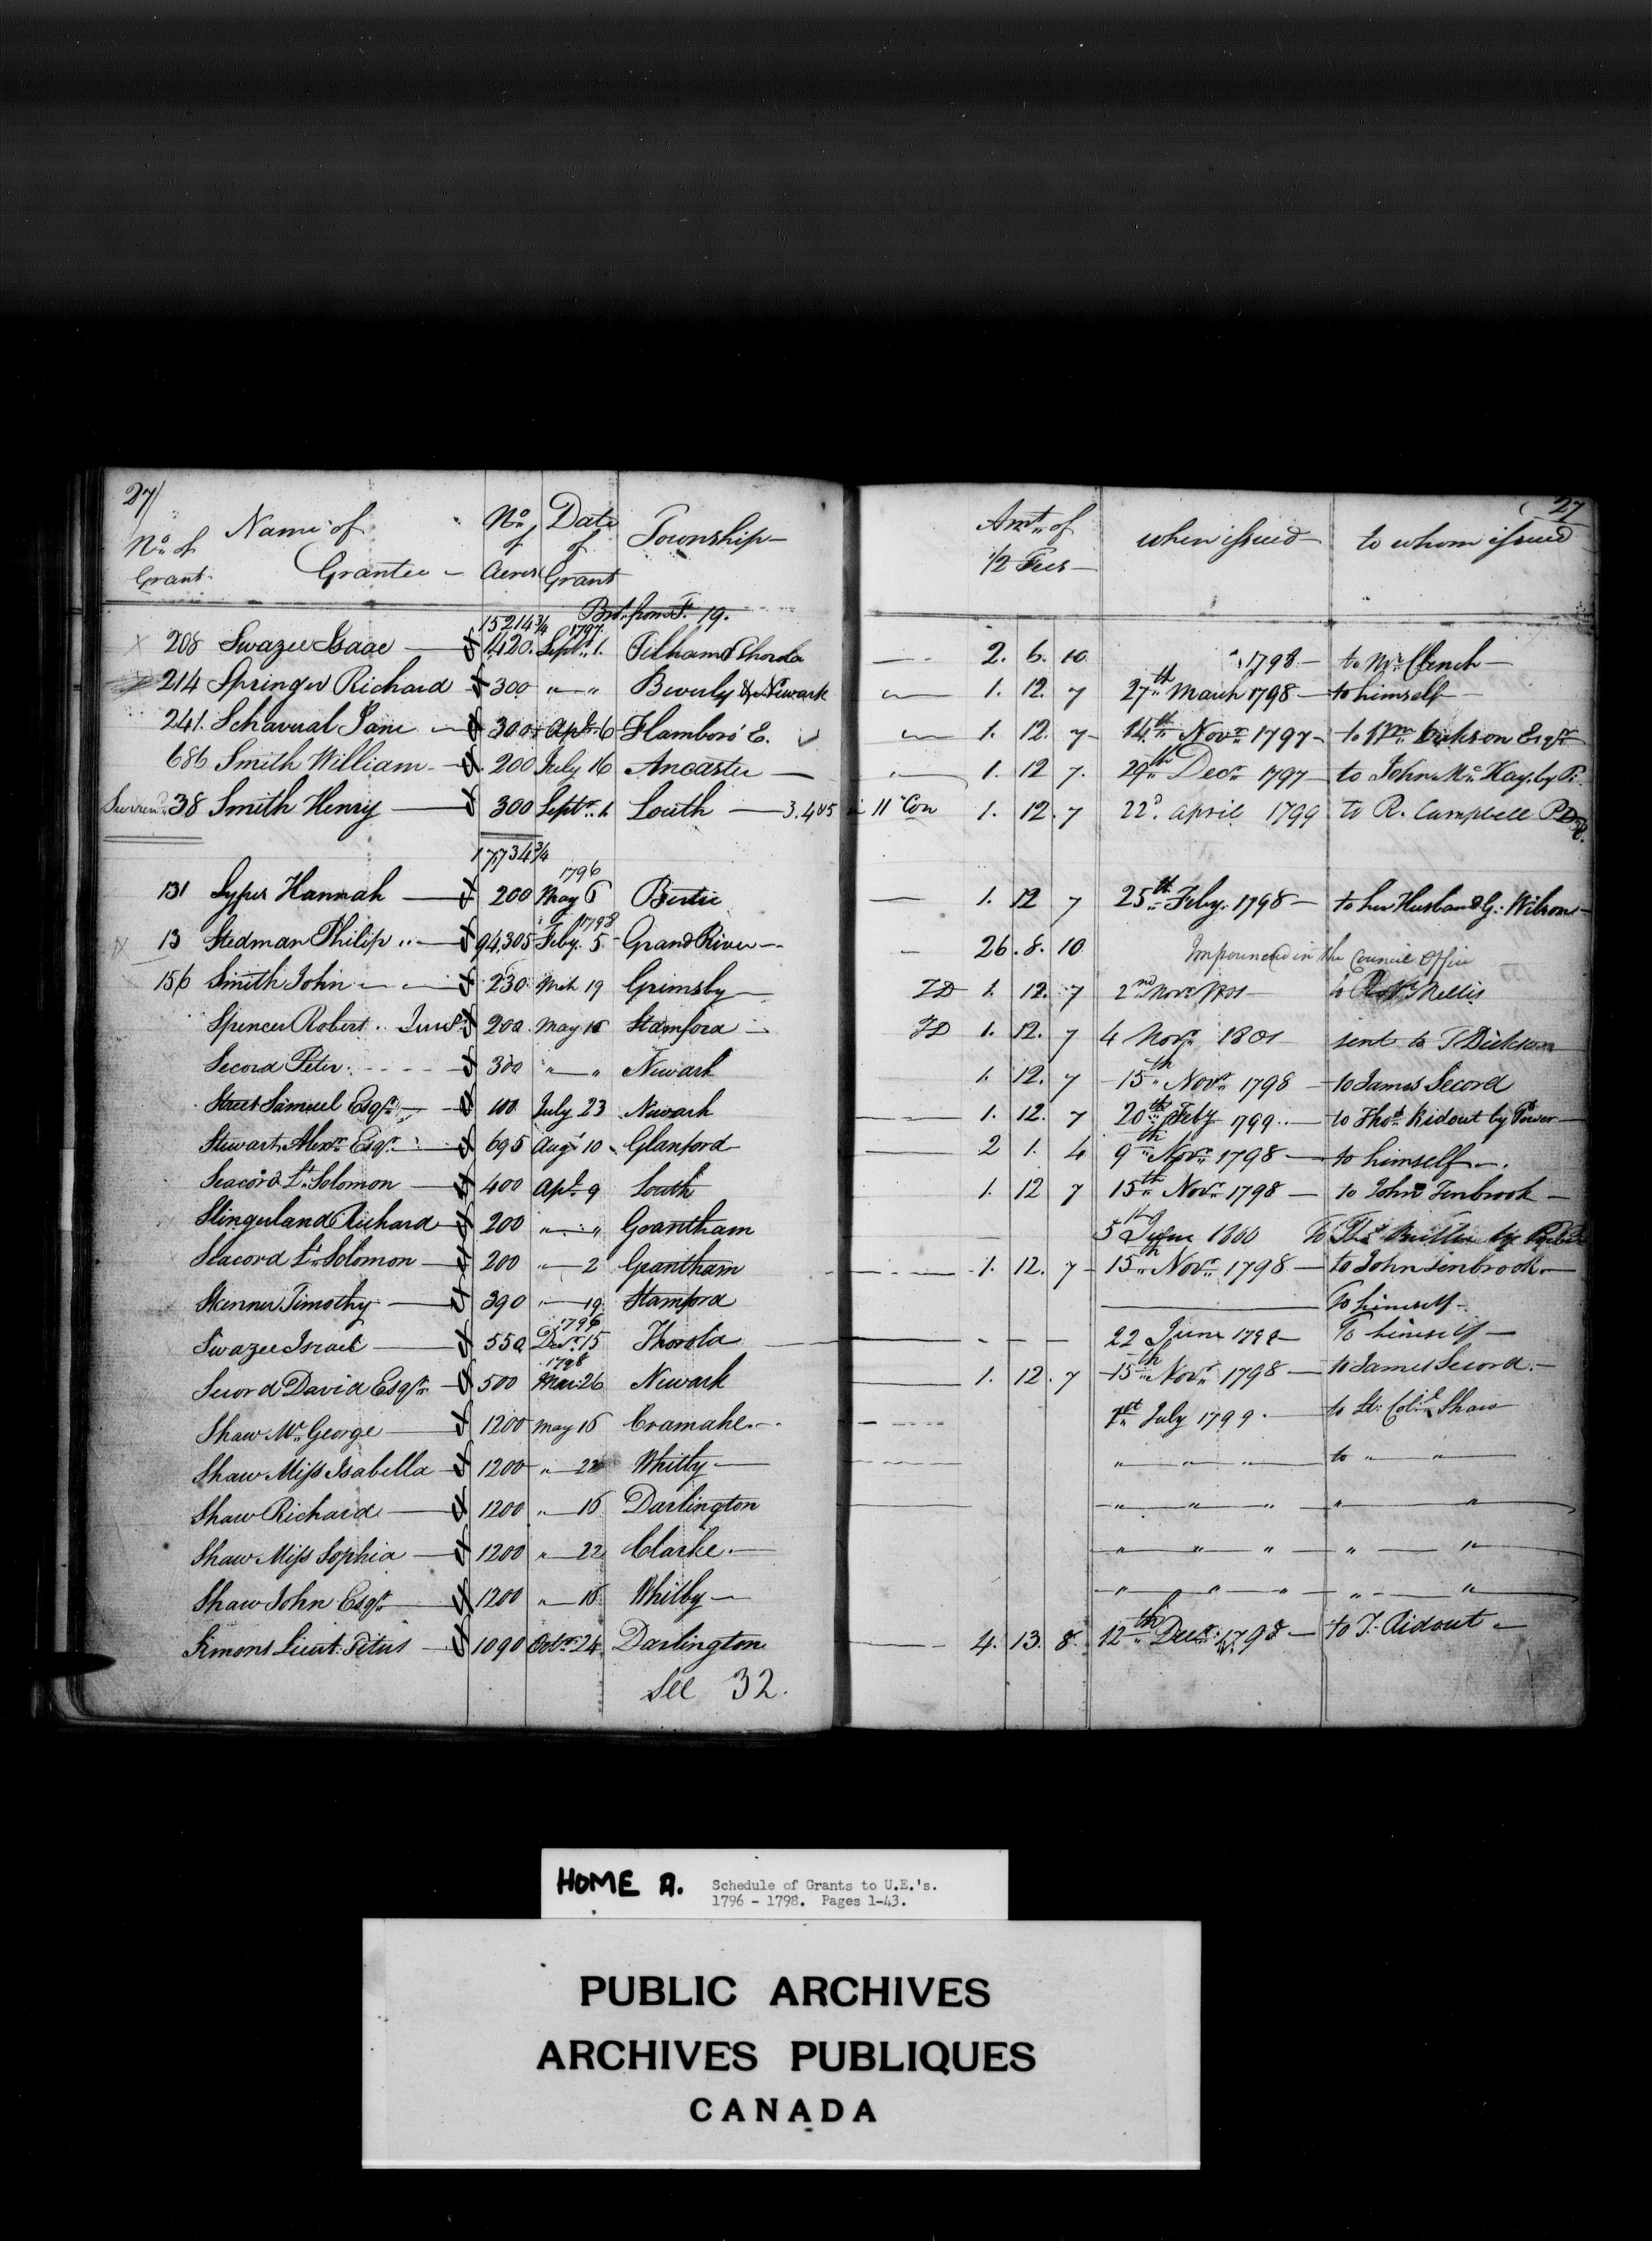 27 27
No. of Grant Name of Grantee No. of Acres Date of Grant Township Amt. of 1/2 Fees when issued to whom issued
15214 3/4 Brot. from F. 19.
1797
208 Swazee Isaac 1420 Septr. 1. Pelham & Thorold 2. 6. 10 1798 to Mr. Clench
214 Springer Richard 300 " " Beverly & Newark 1. 12. 7 27th March 1798 to himself
241. Jane 300 Apl. 6 Flamboro' E. 1. 12. 7 14th Novr. 1797 to Wm. Dickson Esqr.
686 Smith William 200 July 16 Ancaster 1. 12 7. 29th Decr. 1797 to John McKay by P.
38 Smith Henry 300 Septr. 1. Louth 3.4&5 in 11 Con 1. 12. 7 22d. April 1799 to R. Campbell
17,734 3/4
1796
131 Hannah 200 May 6 Bertie 1. 12 7 25th Feby. 1798 to her Husband G: Wilson
1798
13 Stedman Philip 94,305 Feby. 5 Grand River 26. 8. 10 Impounded in the Council Office
156 Smith John 230 Mch 19 Grimsby 1. 12. 7 2nd Novr. 1801 to Nellis
Spencer Robert Junr. 200 May 16 Stamford 1. 12. 7 4 Novr. 1801 sent to T Dickson
Secord Peter 300 " " Newark 1. 12. 7 15th Novr. 1798 to James Secord
Street Samuel Esqr. 100 July 23 Newark 1. 12. 7 20th Feby 1799 to Thos. Ridout by Power
Stewart Alexr. Esqr. 695 Augt 10 Glanford 2 1. 4 9th Novr. 1798 to himself
Seacord Lt. Solomon 400 Apl. 9 Louth 1. 12 7 15th Novr. 1798 to John Tenbrook
Slingerland Richard 200 " " Grantham 5 June 1800 To Thos. Butler by
Seacord Lt. Solomon 200 " 2 Grantham 1. 12. 7 15th Novr. 1798 to John Tenbrook
Skinner Timothy 390 " 19 Stamford To himself
1796
Swazee Israel 550 Decr. 15 Thorold 22 June 1798 To himself
1798
Secord David Esqr. 500 Mar. 26 Newark 1. 12. 7 15th Novr. 1798 to James Secord.
Shaw Mr. George 1200 May 16 Cramahe 1st July 1799. to Lt. Coll. Shaw
Shaw Miss Isabella 1200 " 22 Whitby " " " to " "
Shaw Richard 1200 " 16 Darlington " " " " "
Shaw Miss Sophia 1200 " 22 Clarke " " " " "
Shaw John Esqr. 1200 " 16 Whitby " " " " "
Simons Lieut. Titus 1090 Octr. 24 Darlington 4. 13. 8. 12th Decr. 1798 to T. Ridout
See 32.
HOME A. Schedule of Grants to U.E.'s.
1796 - 1798. Pages 1-43.
PUBLIC ARCHIVES
ARCHIVES PUBLIQUES
CANADA